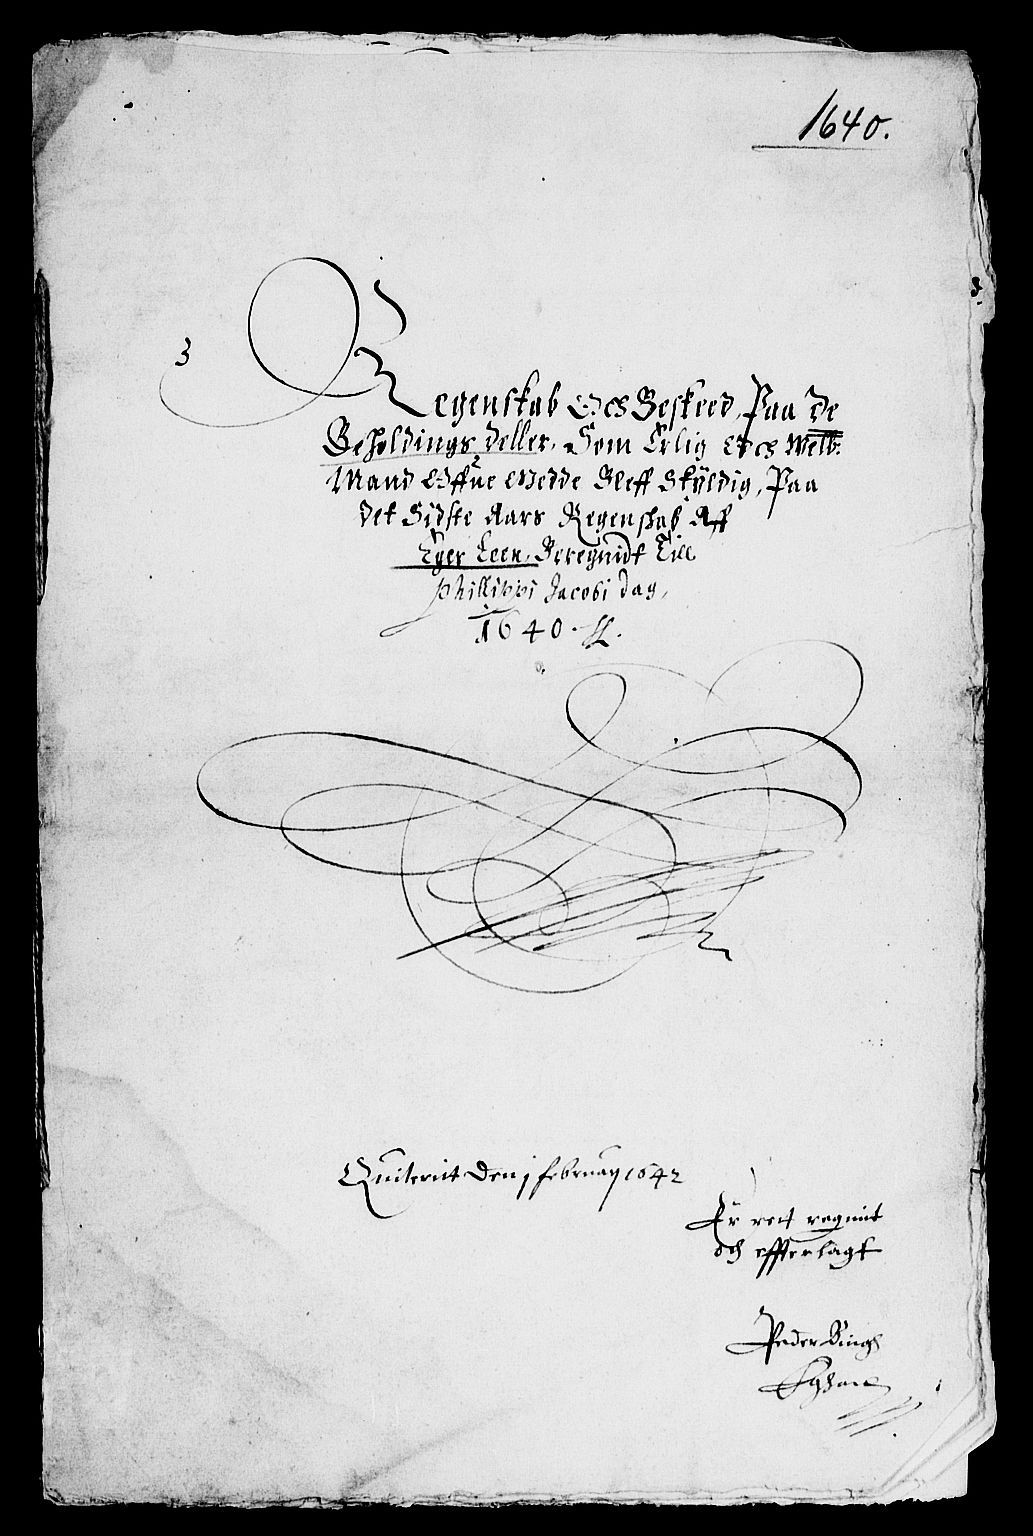 1640.
3
Regenskab Och Beskeed, Paa de
Beholdings deller, Som Erlig Och Welb:
Mand Offue Gedde Bleff Skÿldig, Paa
det Sidste Aars Regenskab Aff
Eger Leen, Beregnidt Till
Phillippi Jacobi dag,
1640.
Quiterit den j februay 1642
Er rett regnit
och effterlagt
Peder Bingh
Eghand